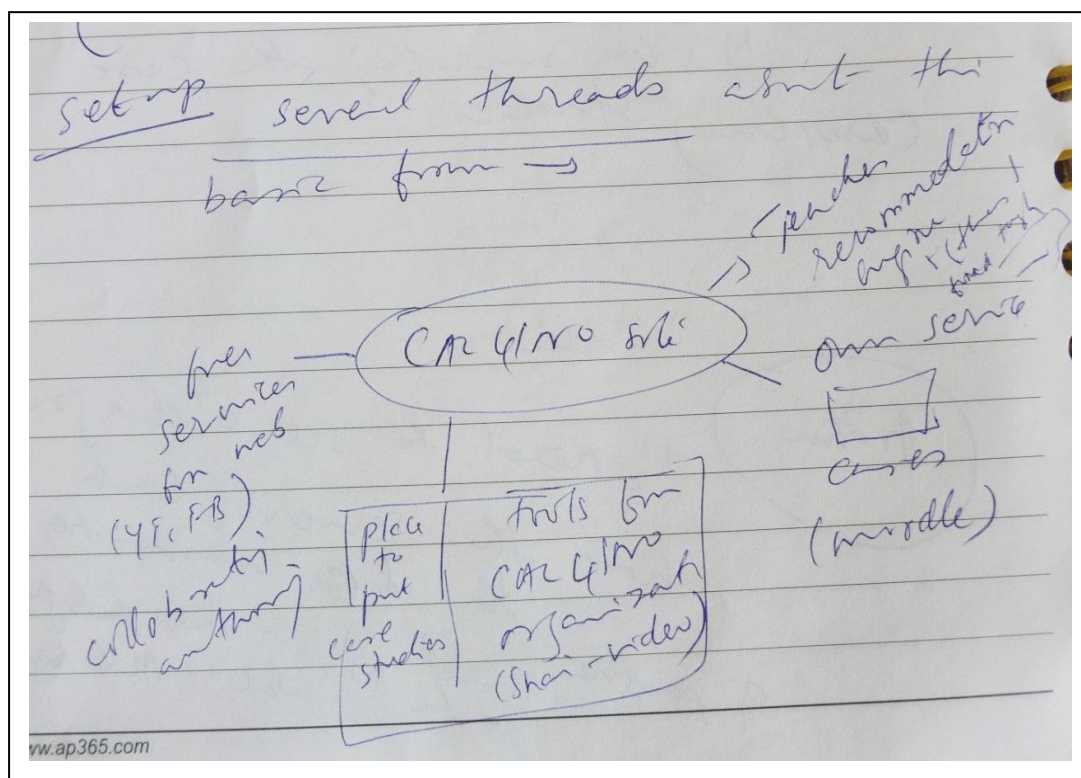 set up several threads about this
basic from →
Teacher
recommedatn
engine
CAL4INO site
own service
free
services
for web
for
(YT, FB)
collobrativ
authoring
place
to
put
case
studies
Tools for
CAL4INO
organizati
(Shai-video)
cases
(moodle)
ww.ap365.com